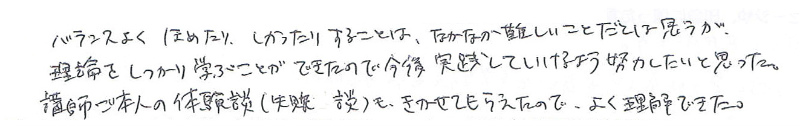 バランスよく ほめたり、しかったりすることは、なかなか難しいことだとは思うが、
理論をしっかり学ぶことができたので今後実践していけるよう努力したいと思った。
講師ご本人の体験談(失敗 談)も、きかせてもらえたので、よく理解できた。